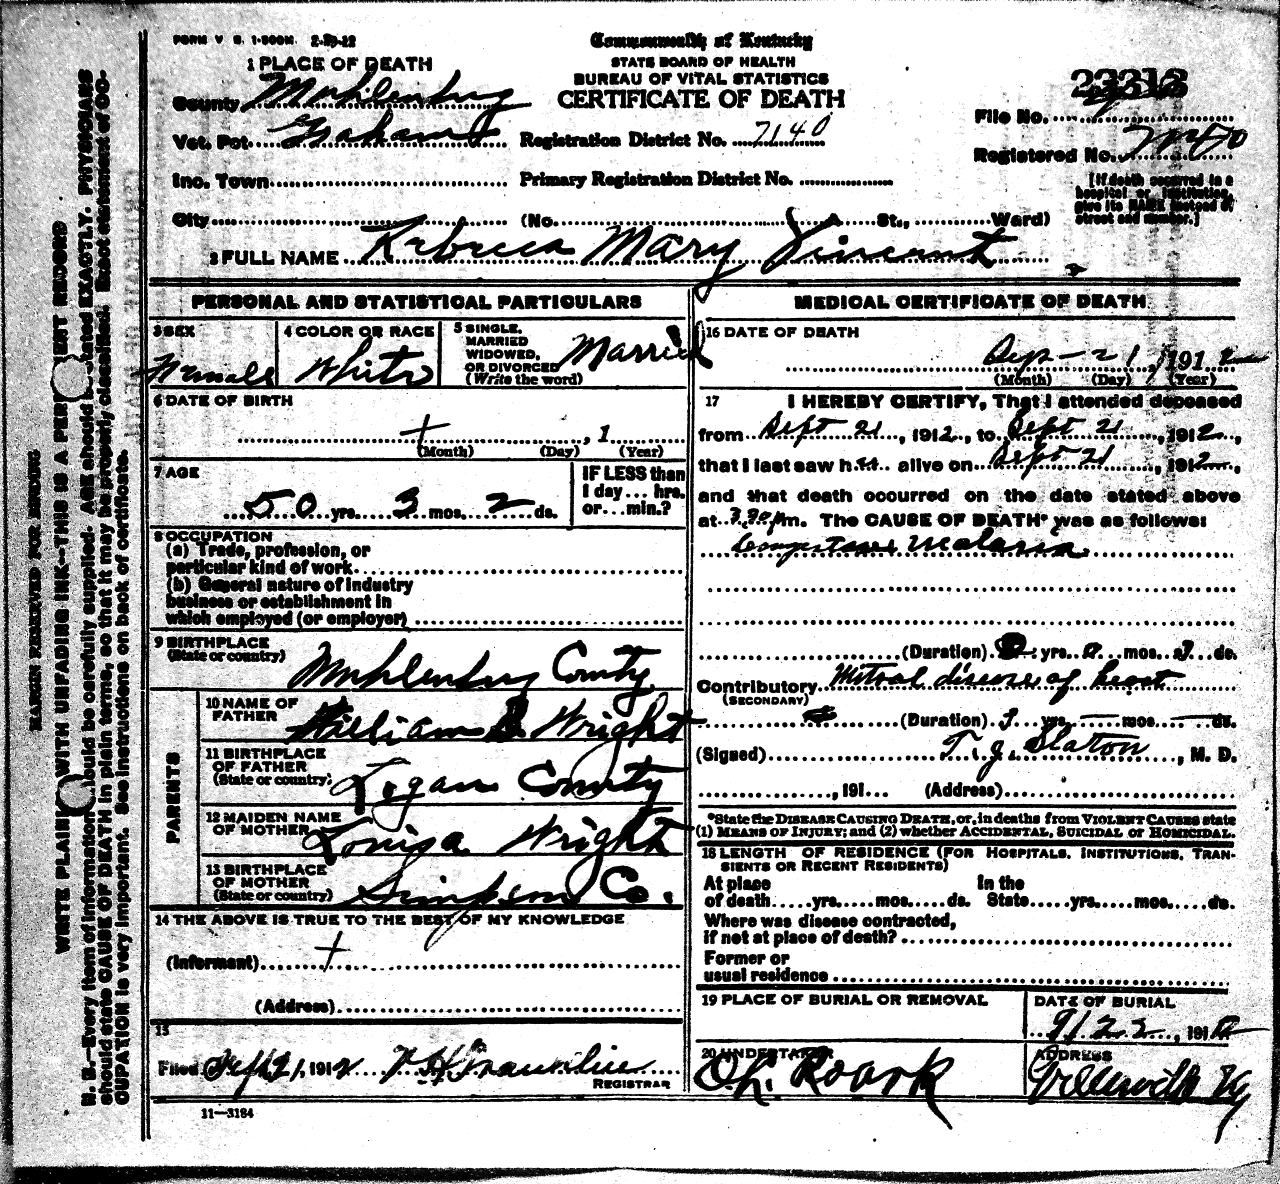 FORM V S. 1-500M. 2-29-12
Commonwealth of Kentucky
STATE BOARD OF HEALTH
BUREAU OF VITAL STATISTICS
CERTIFICATE OF DEATH
1 PLACE OF DEATH
County Muhlenburg
Vot. Pct Graham
Inc. Town
City
Registration District No. 7140
Primary Registration District No.
(No. St., Ward)
23313
File No.
Registered No.
[If death occurred in a
hospital or institution,
give its NAME instead of
street and number.]
2 FULL NAME Rebecca Mary Vincent
PERSONAL AND STATISTICAL PARTICULARS
3 SEX
Female
4 COLOR OR RACE
White
5 SINGLE,
MARRIED
WIDOWED,
OR DIVORCED
(Write the word)
Married
6 DATE OF BIRTH
+ , 1
(Month) (Day) (Year)
7 AGE
50 yrs. 3 mos. 2 ds.
IF LESS than
1 day... hrs.
or...min.?
8 OCCUPATION
(a) Trade, profession, or
particular kind of work
(b) General nature of industry
business or establishment in
which employed (or employer)
9 BIRTHPLACE
(State or country)
Muhlenburg County
PARENTS
10 NAME OF
FATHER
William B Wright
11 BIRTHPLACE
OF FATHER
(State or country)
Logan County
12 MAIDEN NAME
OF MOTHER
Louisa Wright
13 BIRTHPLACE
OF MOTHER
(State or country)
Simpson Co.
14 THE ABOVE IS TRUE TO THE BEST OF MY KNOWLEDGE
(Informant) +
(Address)
15
Filed Sept 21, 1912
REGISTRAR
11-3184
MEDICAL CERTIFICATE OF DEATH
16 DATE OF DEATH
Sep - 21, 1912
(Month) (Day) (Year)
17 I HEREBY CERTIFY, That I attended deceased
from Sept 21, 1912, to Sept 21, 1912,
that I last saw her alive on Sept 21, 1912,
and that death occurred on the date stated above
at 3.30 pm. The CAUSE OF DEATH* was as follows:
Congestive Malaria
(Duration) yrs. mos. ds.
Contributory Mitral disease of heart
(SECONDARY)
(Duration) 3 yrs. — mos. — ds.
(Signed) T. J. Slaton, M. D.
, 191 (Address)
*State the DISEASE CAUSING DEATH, or, in deaths from VIOLENT CAUSES state
(1) MEANS OF INJURY; and (2) whether ACCIDENTAL, SUICIDAL or HOMICIDAL.
18 LENGTH OF RESIDENCE (FOR HOSPITALS, INSTITUTIONS, TRAN-
SIENTS OR RECENT RESIDENTS)
At place In the
of death yrs. mos. ds. State yrs. mos. ds.
Where was disease contracted,
if not at place of death?
Former or
usual residence
19 PLACE OF BURIAL OR REMOVAL
DATE OF BURIAL
9/22, 1912
20 UNDERTAKER
Roark
ADDRESS
Ky
MARGIN RESERVED FOR BINDING
WRITE PLAINLY WITH UNFADING INK—THIS IS A PERMANENT RECORD
N. B.—Every item of information should be carefully supplied. AGE should be stated EXACTLY. PHYSICIANS
should state CAUSE OF DEATH in plain terms, so that it may be properly classified. Exact statement of OC-
CUPATION is very important. See instructions on back of certificate.